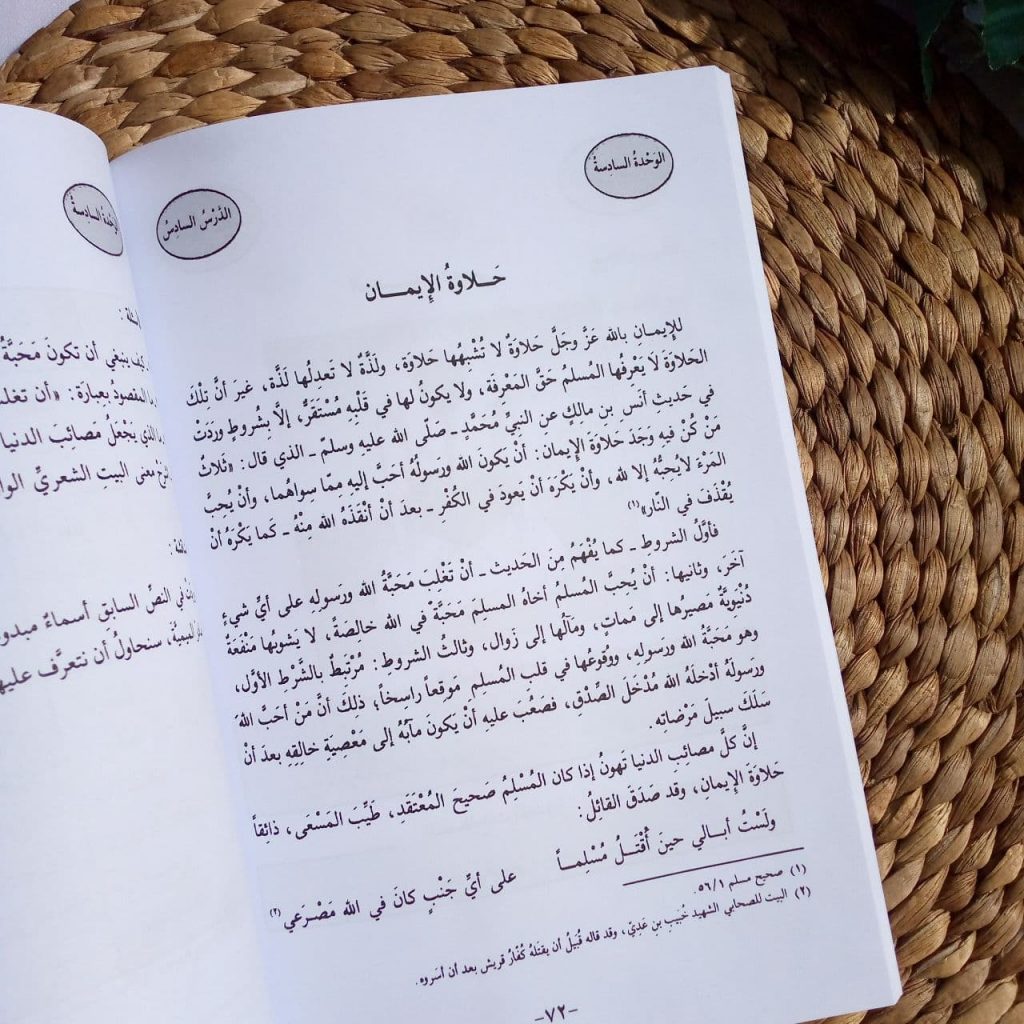 الوَحْدةُ السادسةُ
الدَّرْسُ السادِسُ
حَـلاوةُ الإِيمـــان
للإِيمـانِ بالله عَزَّ وجَلَّ حَلاوَةٌ لا تُشْبِهُها حَلاوَة، ولَذَّةٌ لا تَعدلُها لَذَّة، غيرَ أنَّ تِلْكَ
الحَلاوَةَ لا يَعْرِفُها المُسلمُ حَقَّ المَعْرِفَة، ولا يكونُ لها في قَلْبِه مُسْتَقَرٌّ، إلَّا بِشُروطٍ وردَتْ
في حَديثِ أنَسِ بنِ مالِكٍ عن النبيِّ مُحَمَّدٍ ـ صَلّى الله عليه وسلمّ ـ الذي قال: «ثَلاثٌ
مَنْ كُنَّ فيه وَجَدَ حَلاوَةَ الإِيمان: أنْ يكونَ الله ورَسولُهُ أحَبَّ إليهِ مِمّا سواهُما، وأنْ يُحِبَّ
المَرْءَ لايُحِبُّهُ إلا لله، وأنْ يَكْرَهَ أنْ يعودَ في الكُفْرِ ـ بعدَ أنْ أنْقَذَهُ الله مِنْهُ ـ كَما يَكْرَهُ أنْ
يُقْذَفَ في النّار»(١)
فأوَّلُ الشروط ـ كما يُفْهَمُ مِنَ الحَديث ـ أنْ تَغْلِبَ مَحَبَّةُ الله ورَسولِهِ على أيِّ شيءٍ
آخَرَ، وثانيها: أنْ يُحِبَّ المُسلمُ أخاهُ المسلِمَ مَحَبَّةً في الله خالصَةً، لا يَشوبُها مَنْفَعَةٌ
دُنْيويَّةٌ مَصيرُها إلى مَماتٍ، ومَآلُها إلى زَوال، وثالثُ الشروطِ: مُرْتَبِطٌ بالشَّرْطِ الأوَّل،
وهو مَحَبَّةُ الله ورَسولِهِ، ووُقوعُها في قلب المُسلمِ مَوقِعاً راسخاً؛ ذلِكَ أنَّ مَنْ أحَبَّ اللهَ
ورَسولَهُ أدْخَلَهُ الله مُدْخَلَ الصِّدْقِ، فصَعُبَ عليهِ أنْ يكونَ مآبُهُ إلى مَعْصِيَةِ خالِقِهِ بعدَ أنْ
سَلَكَ سبيلَ مَرْضاتِه.
إنَّ كلَّ مصائِبِ الدنيا تَهونُ إذا كان المُسْلِمُ صَحيحَ المُعْتَقَدِ، طَيِّبَ المَسْعَى، ذائِقاً
حَلاوَةَ الإِيمانِ، وقد صَدَقَ القائِلُ:
ولَسْتُ أُبالي حينَ أُقْتَـلُ مُسْلِمـاً على أيِّ جَنْبٍ كانَ في الله مَصْـرَعي(٢)
(١) صحيح مسلم ٥٦/١.
(٢) البيت للصحابي الشهيد خُبَيب بن عَدِيّ، وقد قاله قُبَيْلُ أن يقتلهُ كُفّارُ قريش بعد أن أسَروه.
-٧٢-
كيف ينبغي أن تكونَ مَحَبَّةُ
المقصودُ بعبارَة: «أن تغلب
الذي يَجْعَلُ مَصائبَ الدنيا
معنى البيتِ الشعريِّ
في النصِّ السابق أسماءٌ
سنحاولُ أن نتعرَّف